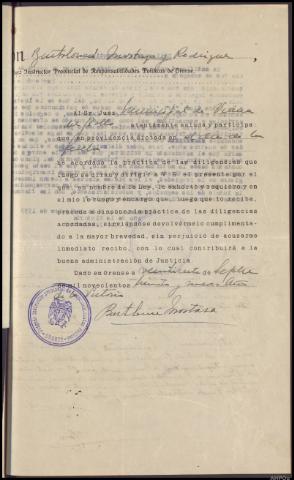 Bartolomé Mostaza y Rodríguez,
Instructor Provincial de Responsabilidades Políticas de Orense
Al Sr. Juez Municipal de Viana
del Bollo atentamente saluda y participo
que, en providencia dictada en
se acordó la práctica de las diligencias que
luego se dirán y dirigir a V. S. el presente por el
que, en nombre de la Ley, le exhorto y requiero y en
el mío le ruego y encargo que, luego que lo reciba,
proceda o disponga la práctica de las diligencias
acordadas, sirviéndose devolvérmelo cumplimenta-
do a la mayor brevedad, sin perjuicio de acusarme
inmediato recibo, con lo cual contribuirá a la
buena administración de Justicia
Dado en Orense a veintisiete de Septbre
de mil novecientos treinta y nueve Año
de la Victoria
Bartolomé Mostaza
ORENSE